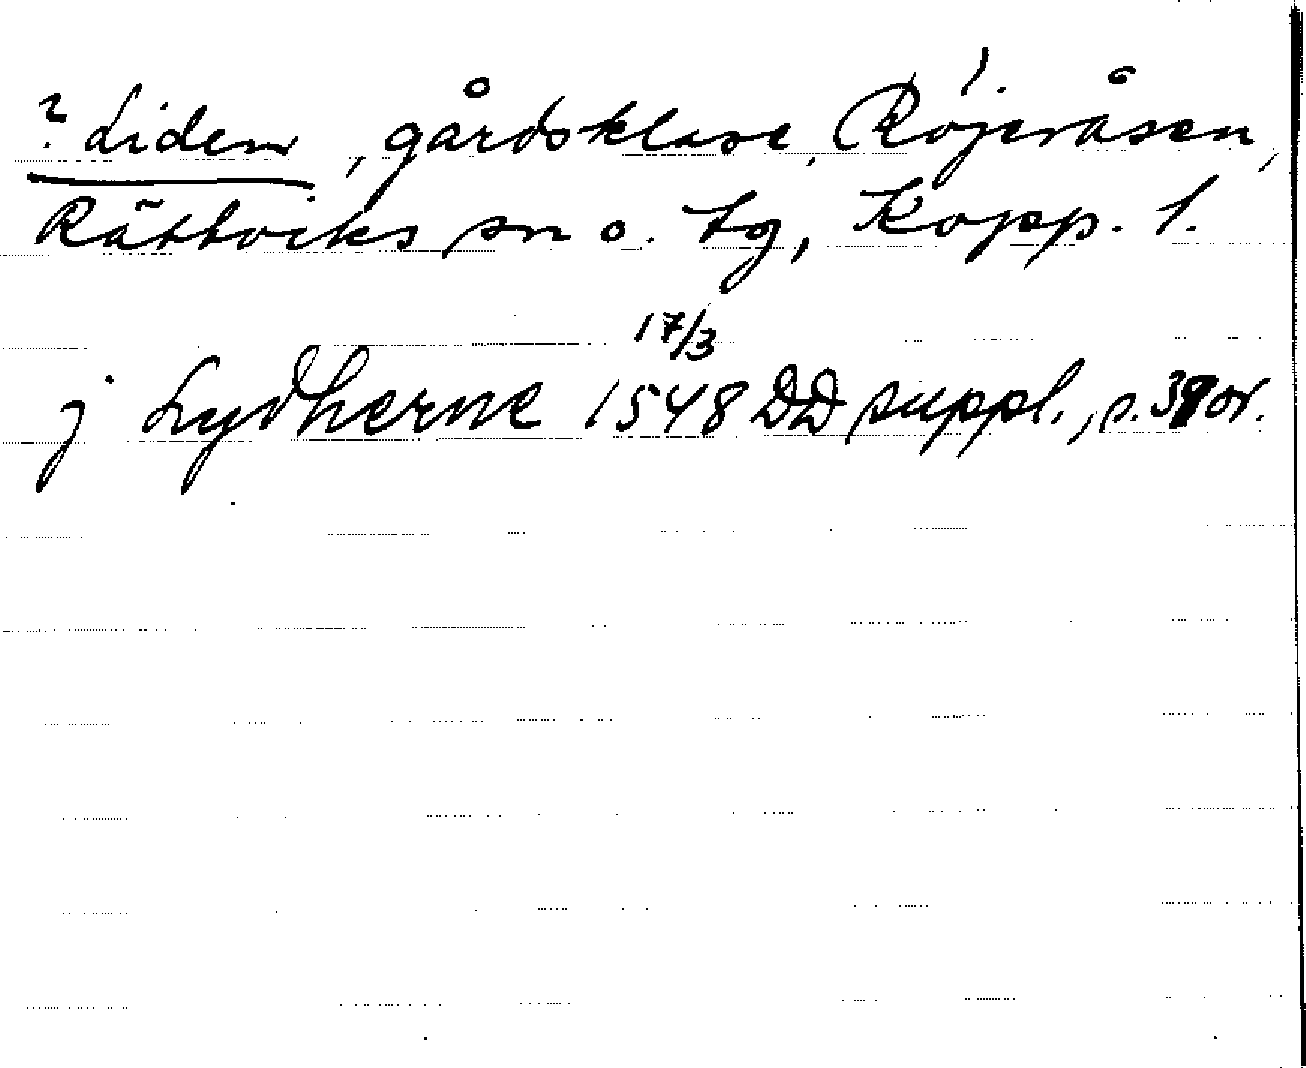 ? Liden, gårdsklase, Röjeråsen,
Rättviks sn o. tg, Kopp. l.
17/3
j Lydherne 1548 DD suppl., s. 39 or.